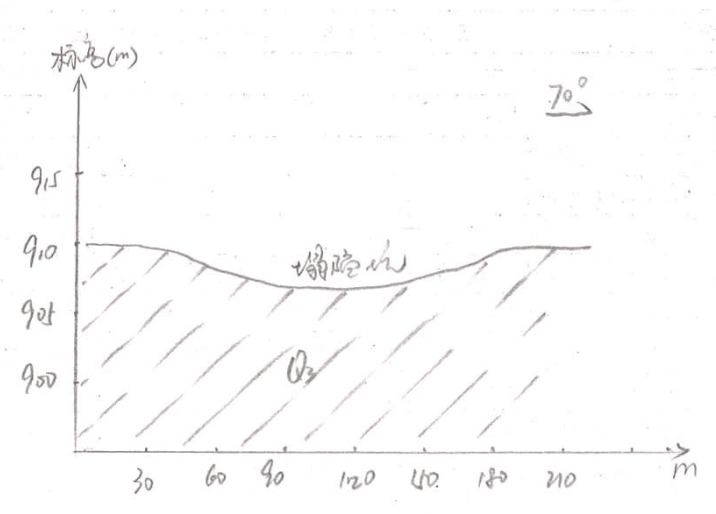 标高(m)
70°
915
910
塌陷坑
905
900
Q3
30 60 90 120 150 180 210 m